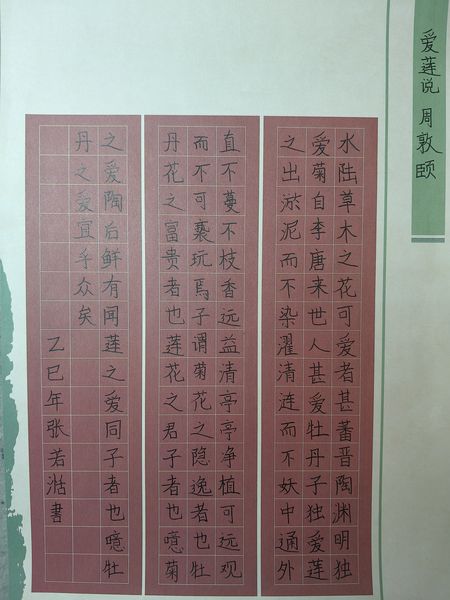 爱莲说 周敦颐
水陆草木之花可爱者甚蕃晋陶渊明独
爱菊自李唐来世人甚爱牡丹子独爱莲
之出淤泥而不染濯清涟而不妖中通外
直不蔓不枝香远益清亭亭净植可远观
而不可亵玩焉子谓菊花之隐逸者也牡
丹花之富贵者也莲花之君子者也噫菊
之爱陶后鲜有闻莲之爱同子者也噫牡
丹之爱宜乎众矣
乙巳年张若湉書